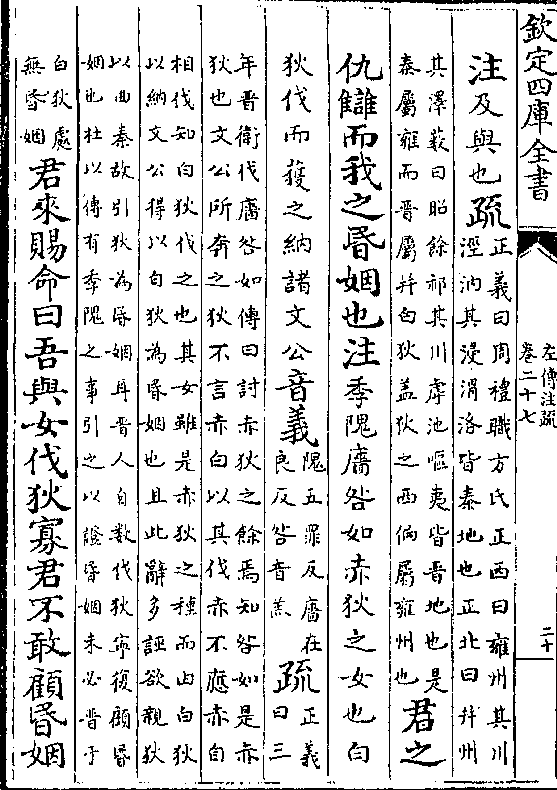 欽定四庫全書
左傳注疏
卷二十七
二十
注及與也疏
正義曰周禮職方氏正西曰雍州其川
涇汭其浸渭洛皆秦地也正北曰幷州
其澤藪曰昭餘祁其川虖池嘔夷皆晉地也是
秦屬雍而晉屬幷白狄蓋狄之西偏屬雍州也
君之
仇讎而我之昬姻也注季隗廧咎如赤狄之女也白
狄伐而獲之納諸文公音義
隗五罪反廧在
良反咎音羔
疏
正義
曰三
年晉衛伐廧咎如傳曰討赤狄之餘焉知咎如是赤
狄也文公所奔之狄不言赤白以其伐赤不應赤自
相伐知白狄伐之也其女雖是赤狄之種而由白狄
以納文公得以白狄為昬姻也且此辭多誣欲親狄
以曲秦故引狄為昬姻再晉人自數伐狄寧復顧昬
姻也杜以傳有季隗之事引之以證昬姻未必晉于
白狄處
無昬姻
君來賜命曰吾與女伐狄寡君不敢顧昬姻